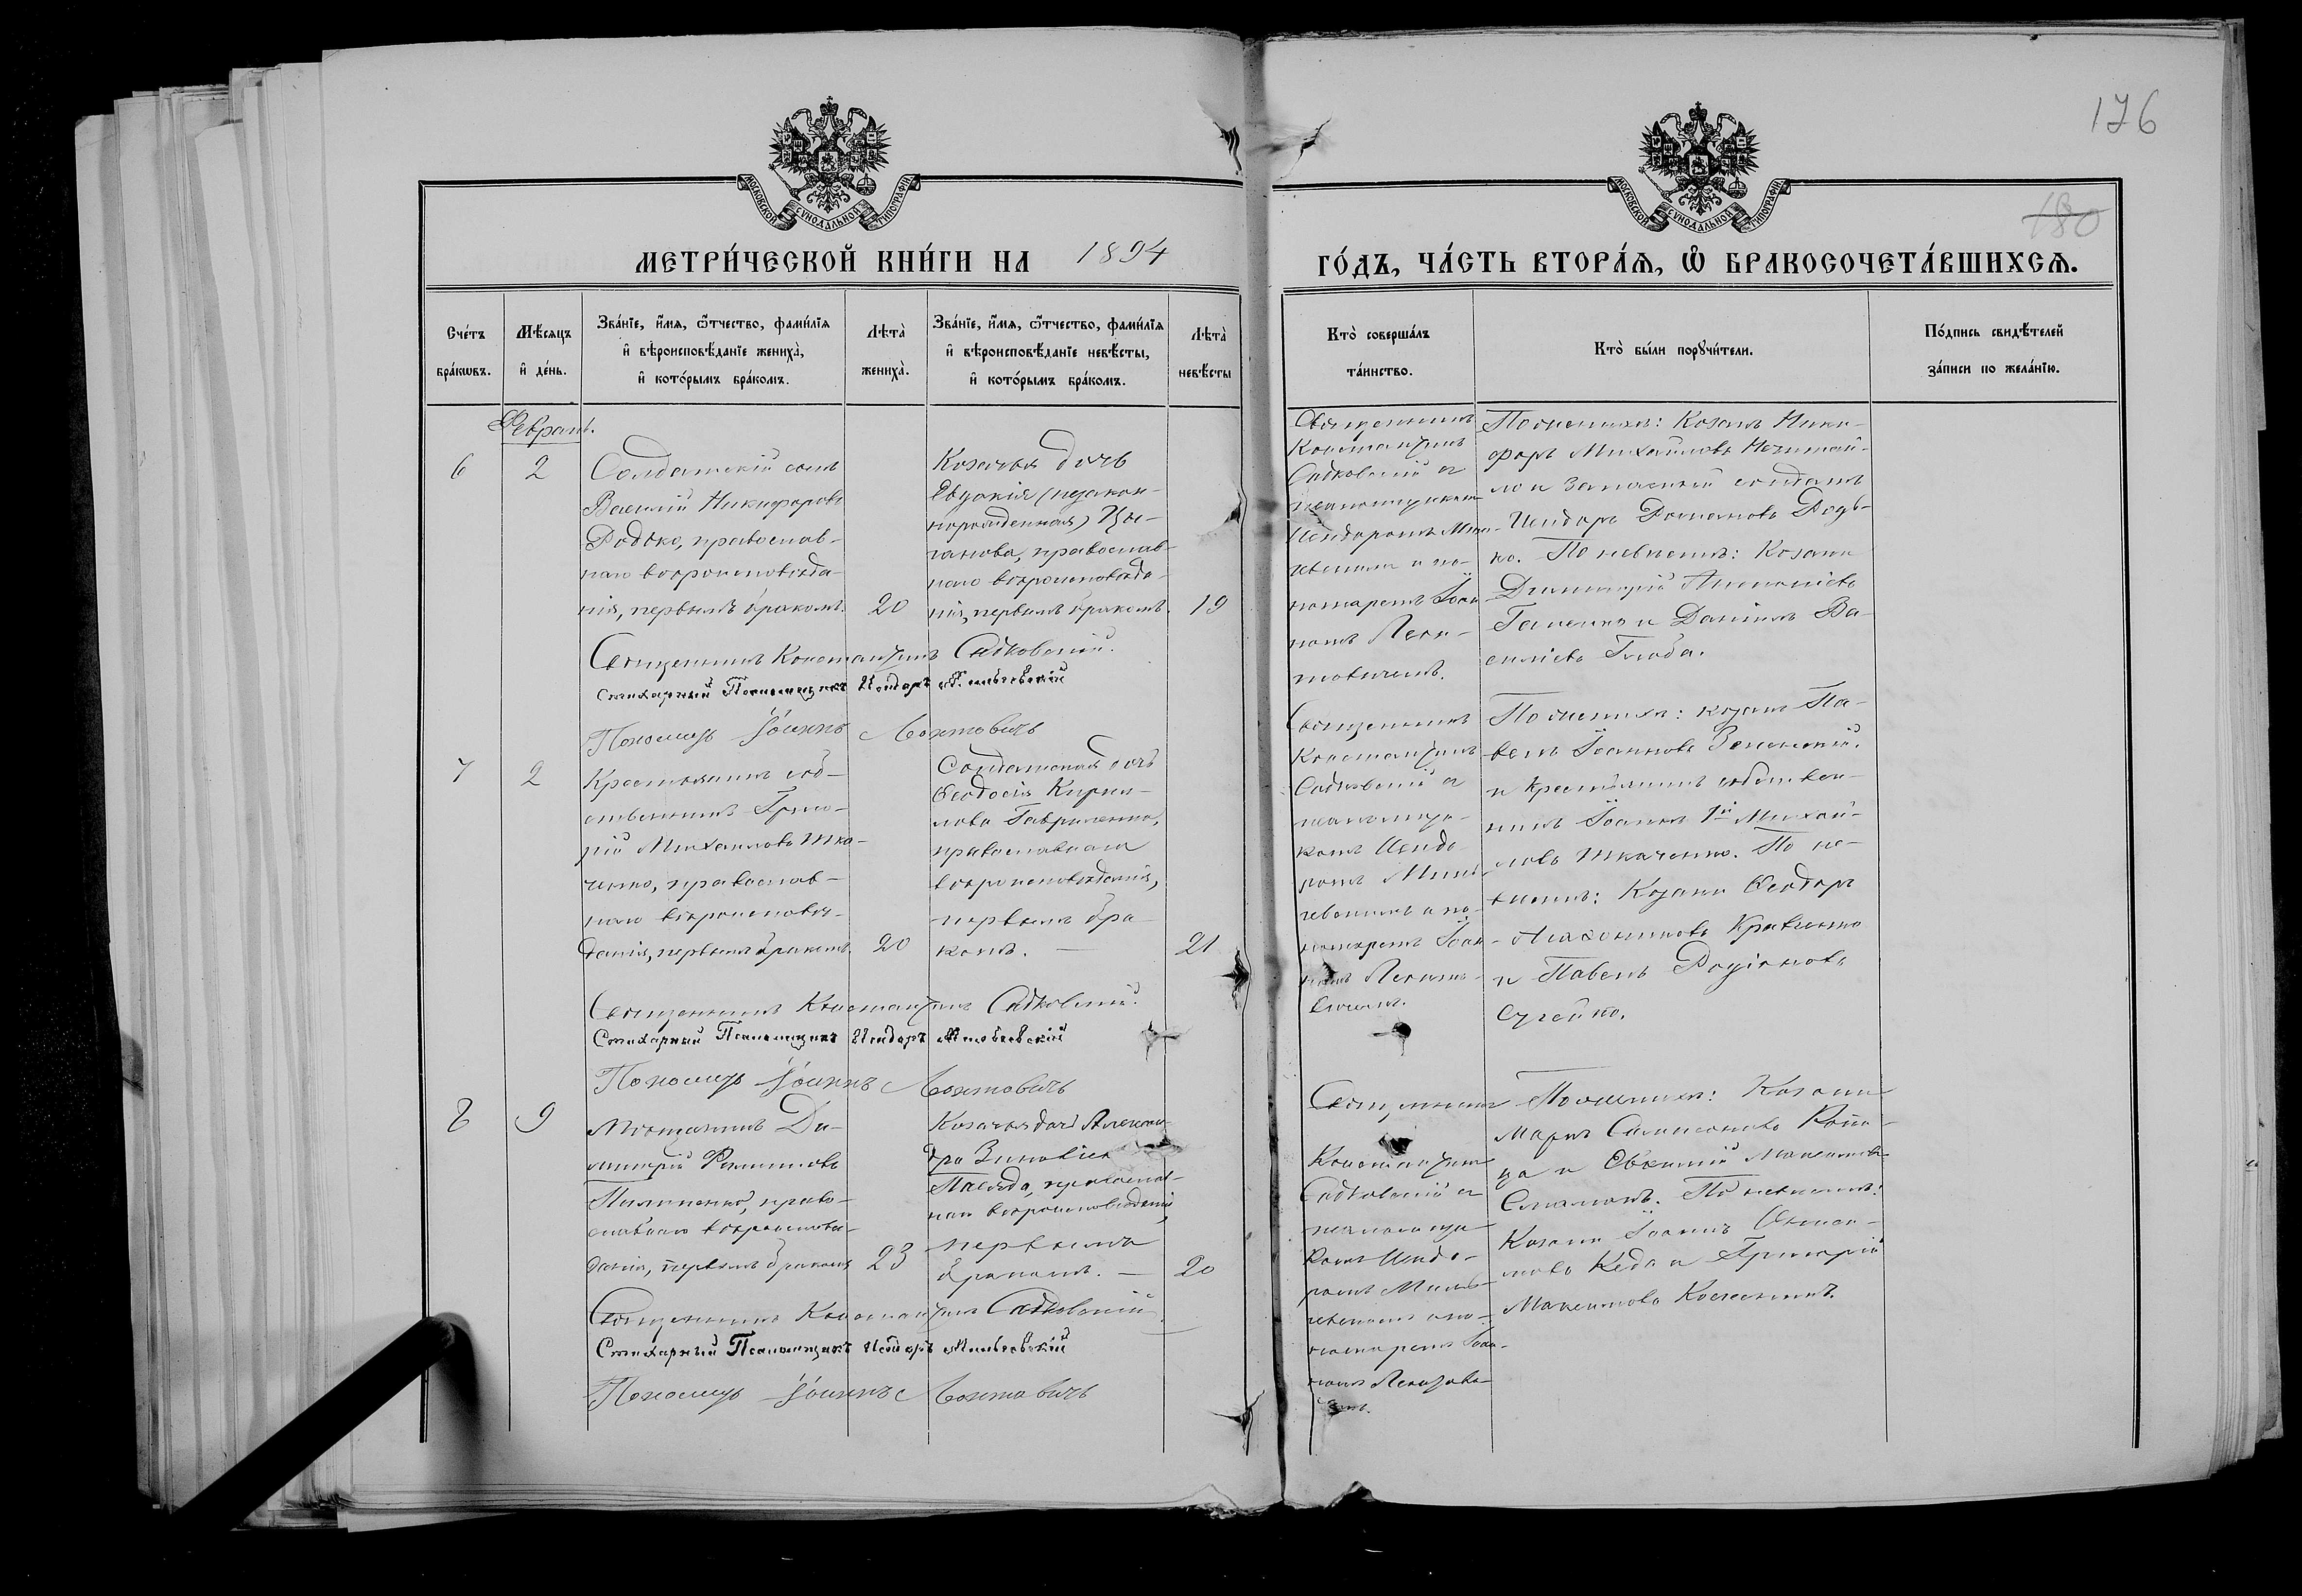 176
180
МОСКОВСКОЙ СѴНОДАЛЬНОЙ ТИПОГРАФІИ
МОСКОВСКОЙ СѴНОДАЛЬНОЙ ТИПОГРАФІИ
МЕТРИ́ЧЕСКОЙ КНИ́ГИ НА 1894
ГО́ДЪ, ЧА́СТЬ ВТОРА́Ѧ, Ѽ БРАКОСОЧЕТА́ВШИХСѦ.
Сче́тъ
бра́кѡвъ.
Мѣ́сяцъ
и҆ де́нь.
Зва́нїе, и҆́мѧ, ѻ҆́тчество, фами́лїѧ
и҆ вѣроисповѣ́данїе жениха̀,
и҆ кото́рымъ бра́комъ.
Лѣта̀
жениха̀.
Зва́нїе, и҆́мѧ, ѻ҆́тчество, фами́лїѧ
и҆ вѣроисповѣ́данїе невѣ́сты,
и҆ кото́рымъ бра́комъ.
Лѣта̀
невѣ́сты
Кто̀ соверша́лъ
та́инство.
Кто̀ бы́ли порꙋчи́тели.
По́дпись свидѣ́телей
за́писи по жела́нїю.
Февраль.
6
2
Солдатскій сынъ
Василій Никифоровъ
Родько, православ-
наго вѣроисповѣда-
нія, первымъ бракомъ.
20
Козачья дочь
Евдокія (незакон-
норожденная) Цы-
ганова, православ-
наго вѣроисповѣда-
нія, первымъ бракомъ.
19
Священникъ
Константинъ
Садковскій съ
псаломщикомъ
Исидоромъ Миль-
чевскимъ и по-
номаремъ Іоан-
номъ Леон-
товичемъ.
По женихѣ: Козакъ Ники-
форъ Михайловъ Нечитай-
ло и запасный солдатъ
Исидоръ Романовъ Родь-
ко. По невѣстѣ: Козаки
Димитрій Антоніевъ
и Даніилъ Ва-
силіевъ
Священникъ Константинъ Садковскій.
Стихарный Псаломщикъ Исидоръ Мильчевскій
Пономарь Іоаннъ Леонтовичъ
7
2
Крестьянинъ соб-
ственникъ Григо-
рій Михайловъ Тка-
ченко, православ-
наго вѣроисповѣ-
данія, первымъ бракомъ.
20
Солдатская дочь
Ѳеодосія Кирил-
лова Гавриленко,
православнаго
вѣроисповѣданія,
первымъ бра-
комъ. —
21
Священникъ
Константинъ
Садковскій съ
псаломщи-
комъ Исидо-
ромъ Миль-
чевскимъ и по-
номаремъ Іоан-
номъ Леонто-
вичемъ.
По женихѣ: козакъ Па-
велъ Іоанновъ
и крестьянинъ собствен-
никъ Іоаннъ 1й Михай-
ловъ Ткаченко. По не-
вѣстѣ: Козаки Ѳеодоръ
Кравченко
и Павелъ Родіоновъ
Священникъ Константинъ Садковскій.
Стихарный Псаломщикъ Исидоръ Мильчевскій
Пономарь Іоаннъ Леонтовичъ
8
9
Мѣщанинъ Ди-
митрій Филипповъ
Пилипенко, право-
славнаго вѣроисповѣ-
данія, первымъ бракомъ
23
Козачья дочь Алексан-
дра Зиновіева
православ-
наго вѣроисповѣданія,
первымъ
бракомъ. —
20
Священникъ
Константинъ
Садковскій съ
псаломщи-
комъ Исидо-
ромъ Миль-
чевскимъ и по-
номаремъ Іоан-
номъ Леонтови-
чемъ.
По женихѣ: Козаки
и Евѳимій Максимовъ
По невѣстѣ:
Козаки Іоаннъ
Кеда и Григорій
Максимовъ
Священникъ Константинъ Садковскій
Стихарный Псаломщикъ Исидоръ Мильчевскій
Пономарь Іоаннъ Леонтовичъ